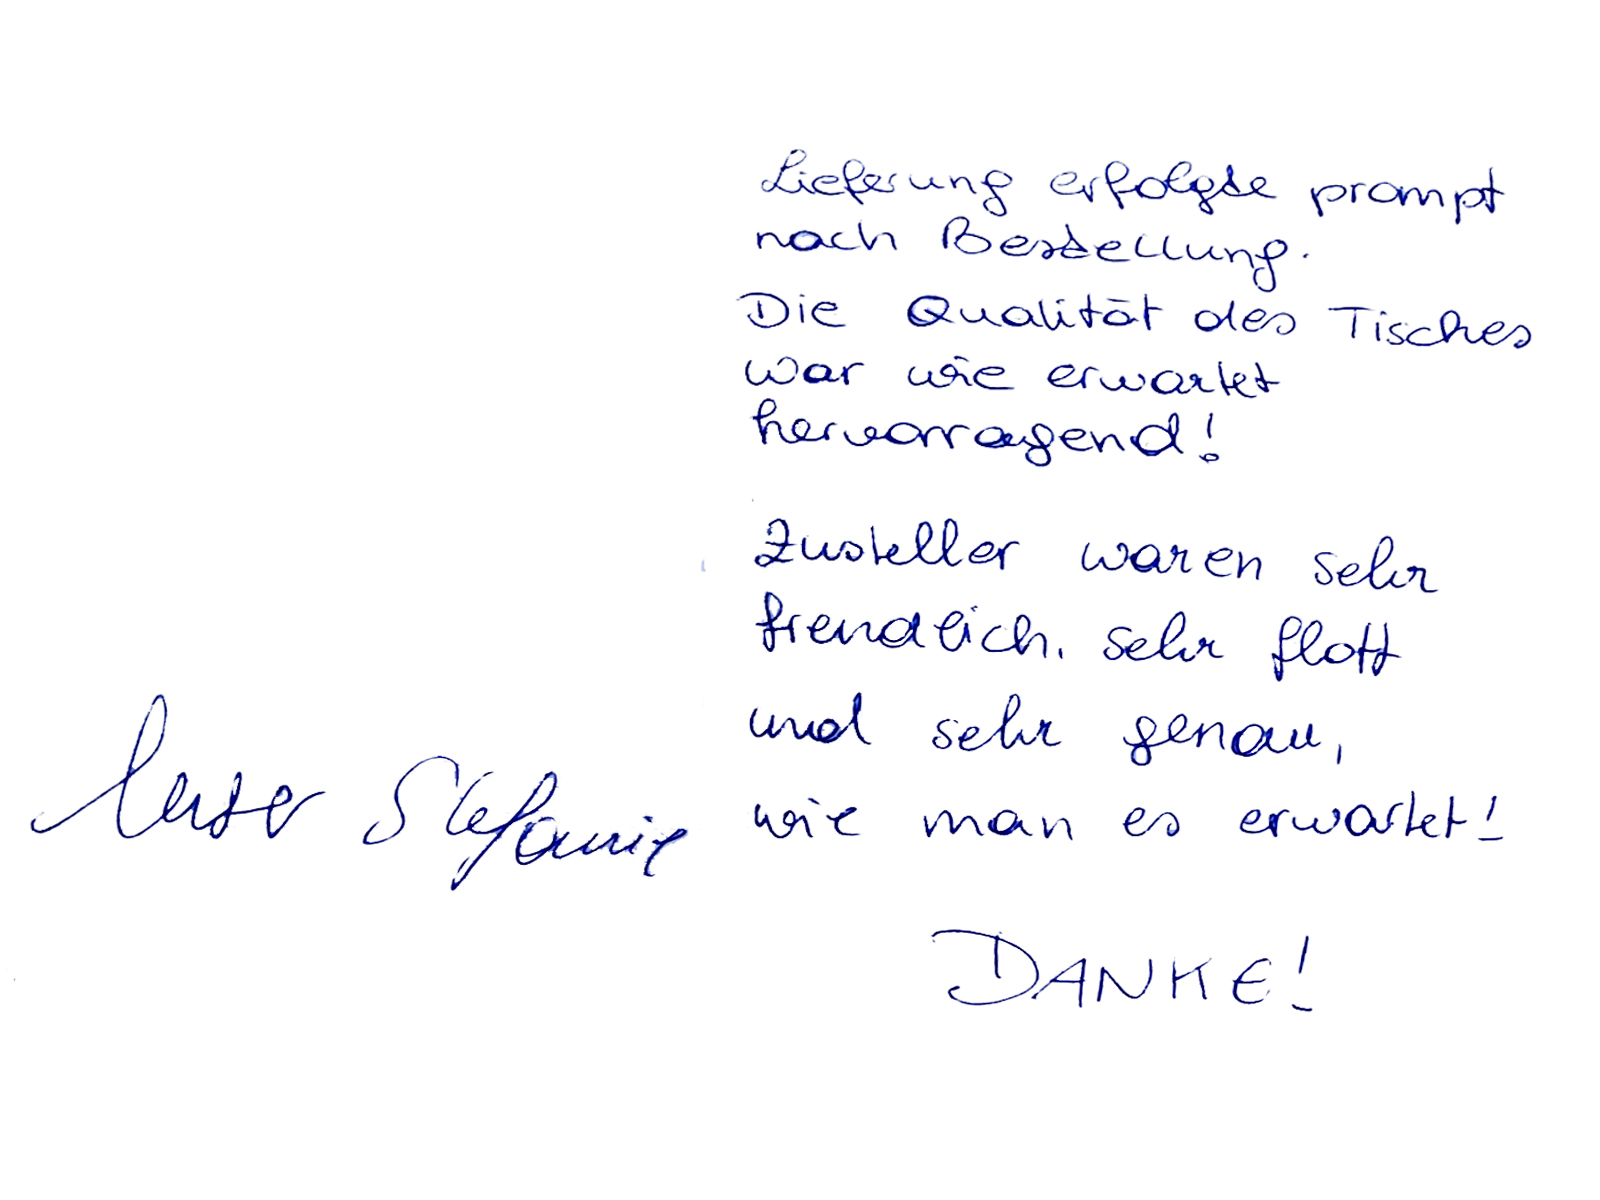 Lieferung erfolgte prompt
nach Bestellung.
Die Qualität des Tisches
war wie erwartet
hervorragend!
Zusteller waren sehr
freundlich, sehr flott
und sehr genau,
wie man es erwartet!
Stefanie
DANKE!